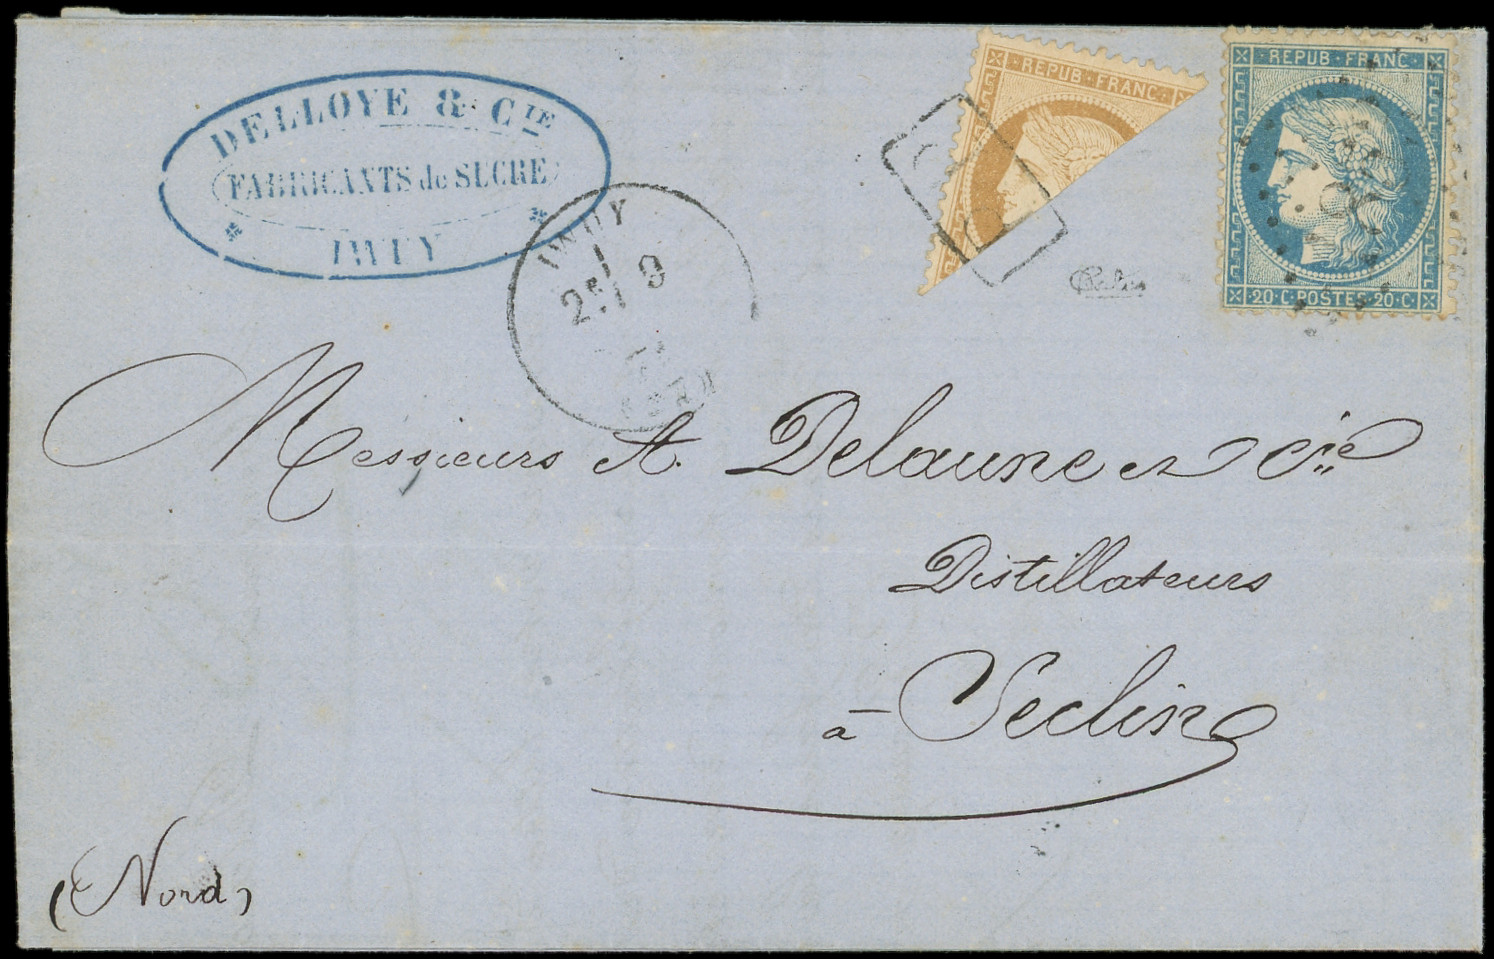 DELLOYE & CIE
FABRICANTS de SUCRE
IWUY
IWUY
9
REPUB·FRANC·
REPUB·FRANC·
20·C·POSTES·20·C·
Messieurs A. Delaune et Cie
Distillateurs
à Seclin
(Nord)